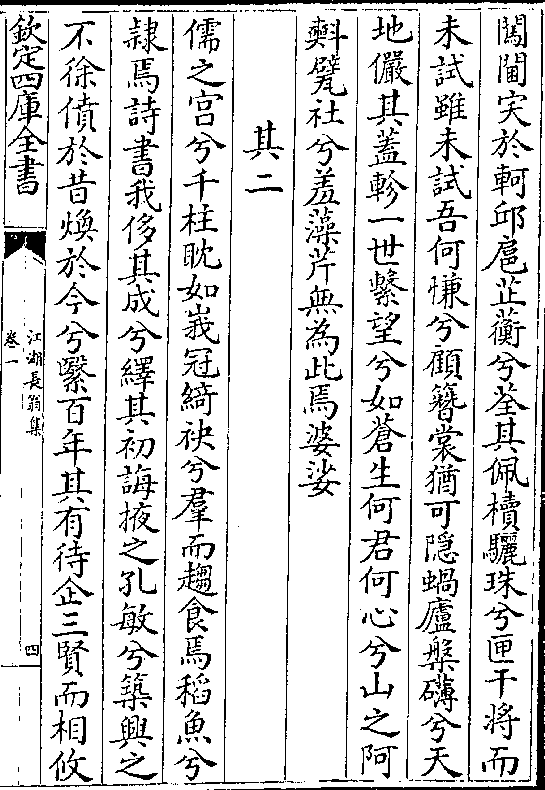 闖闔宎於軻邱扈芷蘅兮荃其佩櫝驪珠兮匣干將而
未試雖未試吾何慊兮顧簪裳猶可隠蝸廬槃礴兮天
地儼其蓋軫一世繫望兮如蒼生何君何心兮山之阿
斞甓社兮羞藻芹無為此焉婆娑
其二
儒之宫兮千柱眈如峩冠綺袂兮羣而趨食焉稻魚兮
隷焉詩書我侈其成兮繹其初誨掖之孔敏兮築興之
不徐僨於昔煥於今兮繄百年其有待企三賢而相攸
欽定四庫全書
江湖長翁集
卷一
四